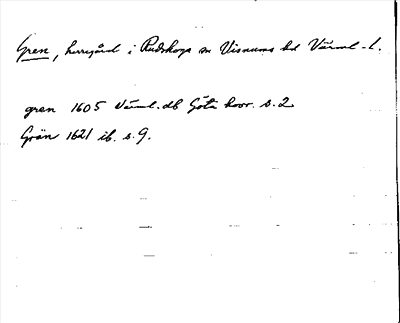 Gren, herrgård i Rudskoga sn Visnums hd Värml. l.
gren 1605 Värml. db Göta hovr. s. 2
Grän 1621 ib. s. 9.